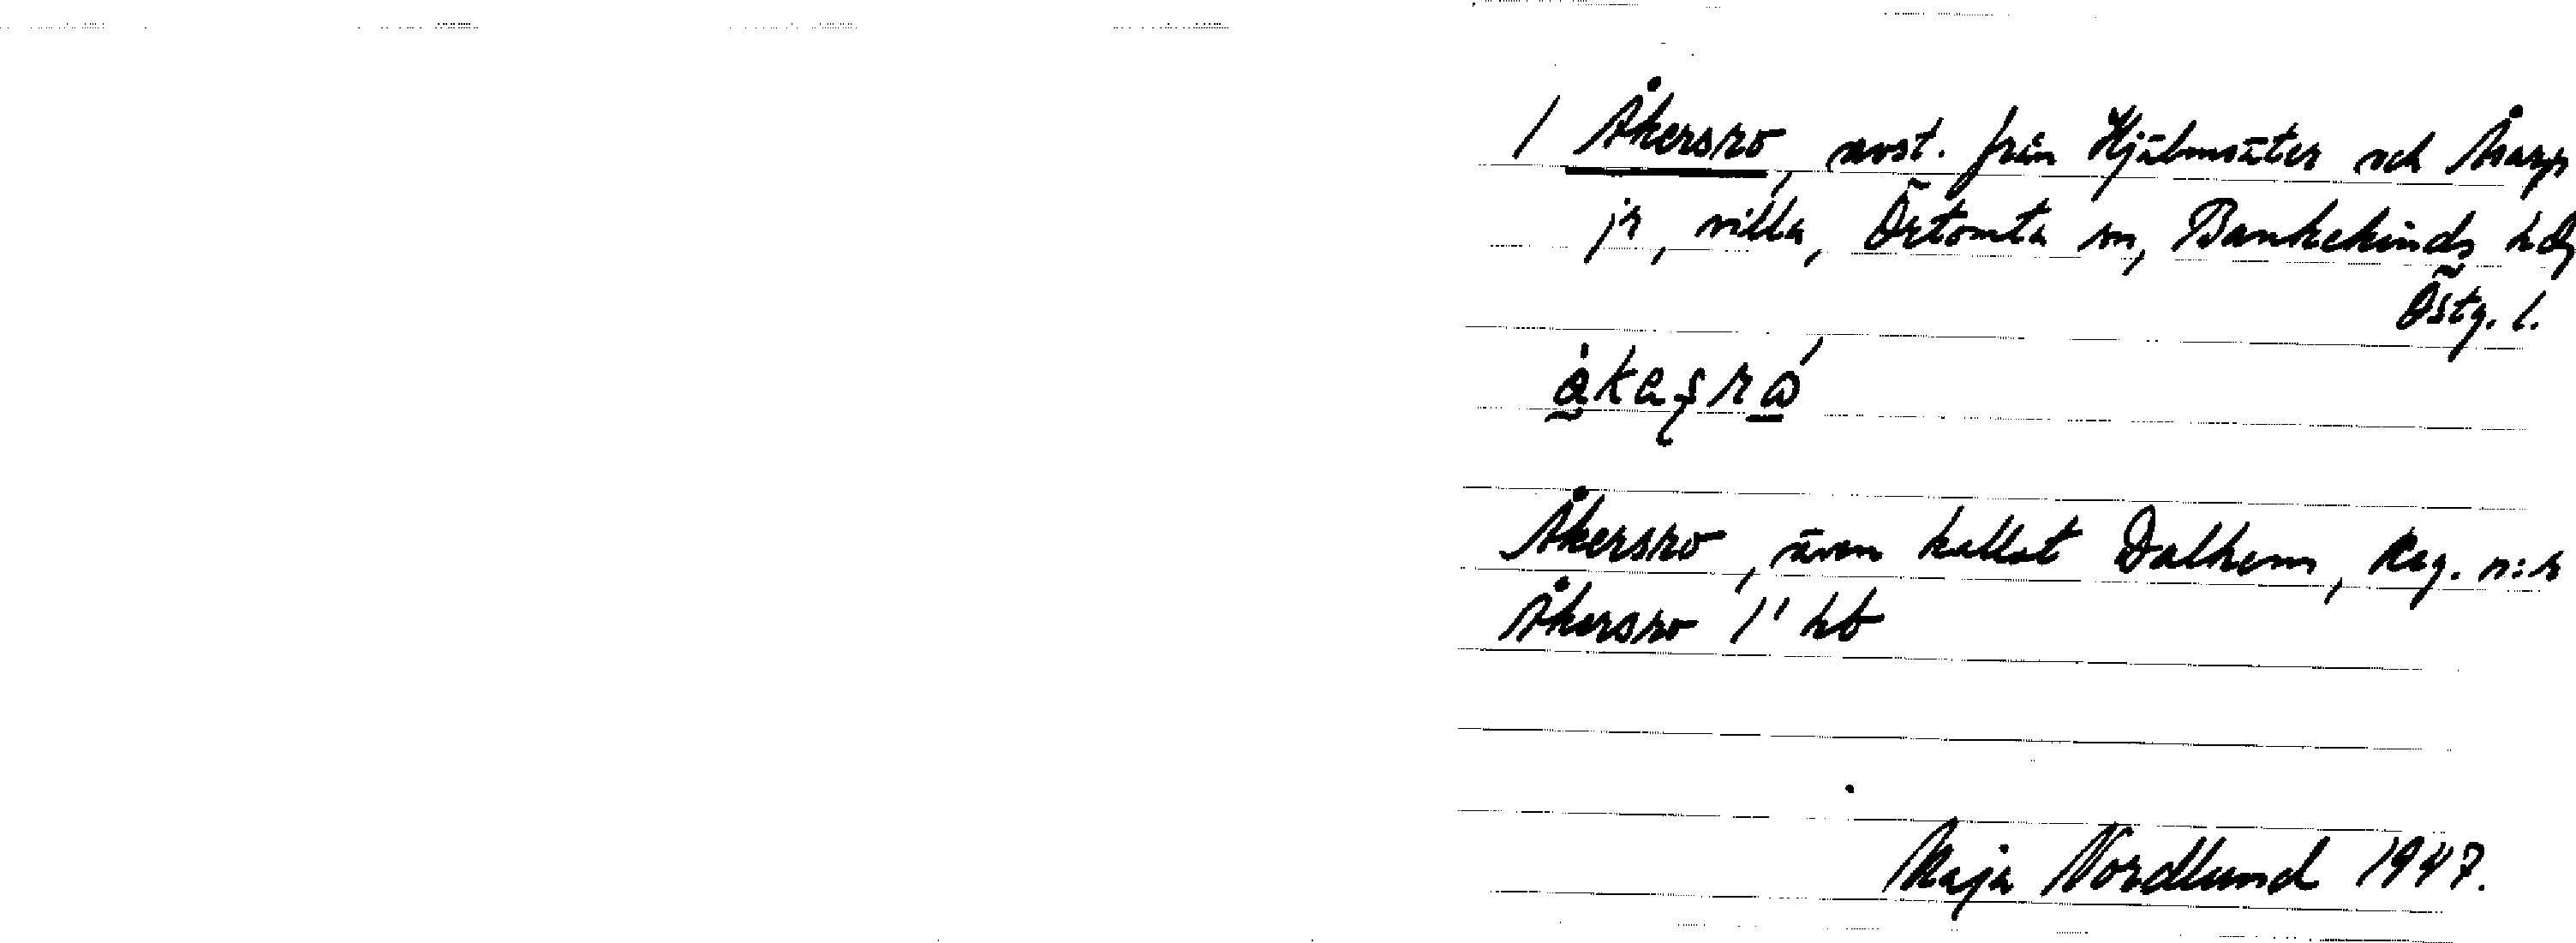 1 Åkersro, avst. från Hjälmsäter och Åsarp
jr, villa, Örtomta sn, Bankekinds hd,
Östg. l.
Åkersro, även kallat Dalhem, Reg. n:r
Åkersro 1¹ hb
Maja Nordlund 1947.